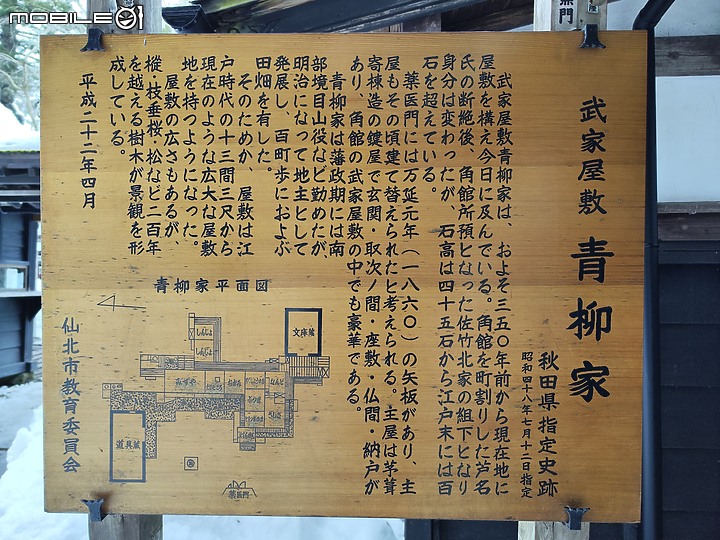 武家屋敷 青柳家
秋田県指定史跡
昭和四十八年七月十二日指定
武家屋敷青柳家は、およそ三五〇年前から現在地に
屋敷を構え今日に及んでいる。角館を町割りした芦名
氏の断絶後、角館所預となった佐竹北家の組下となり
身分は変わったが、石高は四十五石から江戸末には百
石を超えている。
薬医門には万延元年（一八六〇）の矢板があり、主
屋もその頃建て替えられたと考えられる。主屋は茅葺
寄棟造の鍵屋で玄関・取次ノ間・座敷・仏間・納戸が
あり、角館の武家屋敷の中でも豪華である。
青柳家は藩政期には南
部境目山役など勤めたが
明治になって地主として
発展し、百町歩におよぶ
田畑を有した。
そのためか、屋敷は江
戸時代の十三間三尺から
現在のような広大な屋敷
地を持つようになった。
屋敷の広さもあるが、
樅・枝垂桜・松など二百年
を越える樹木が景観を形
成している。
平成二十二年四月
青柳家平面図
文庫蔵
道具蔵
薬医門
仙北市教育委員会
MOBILE01